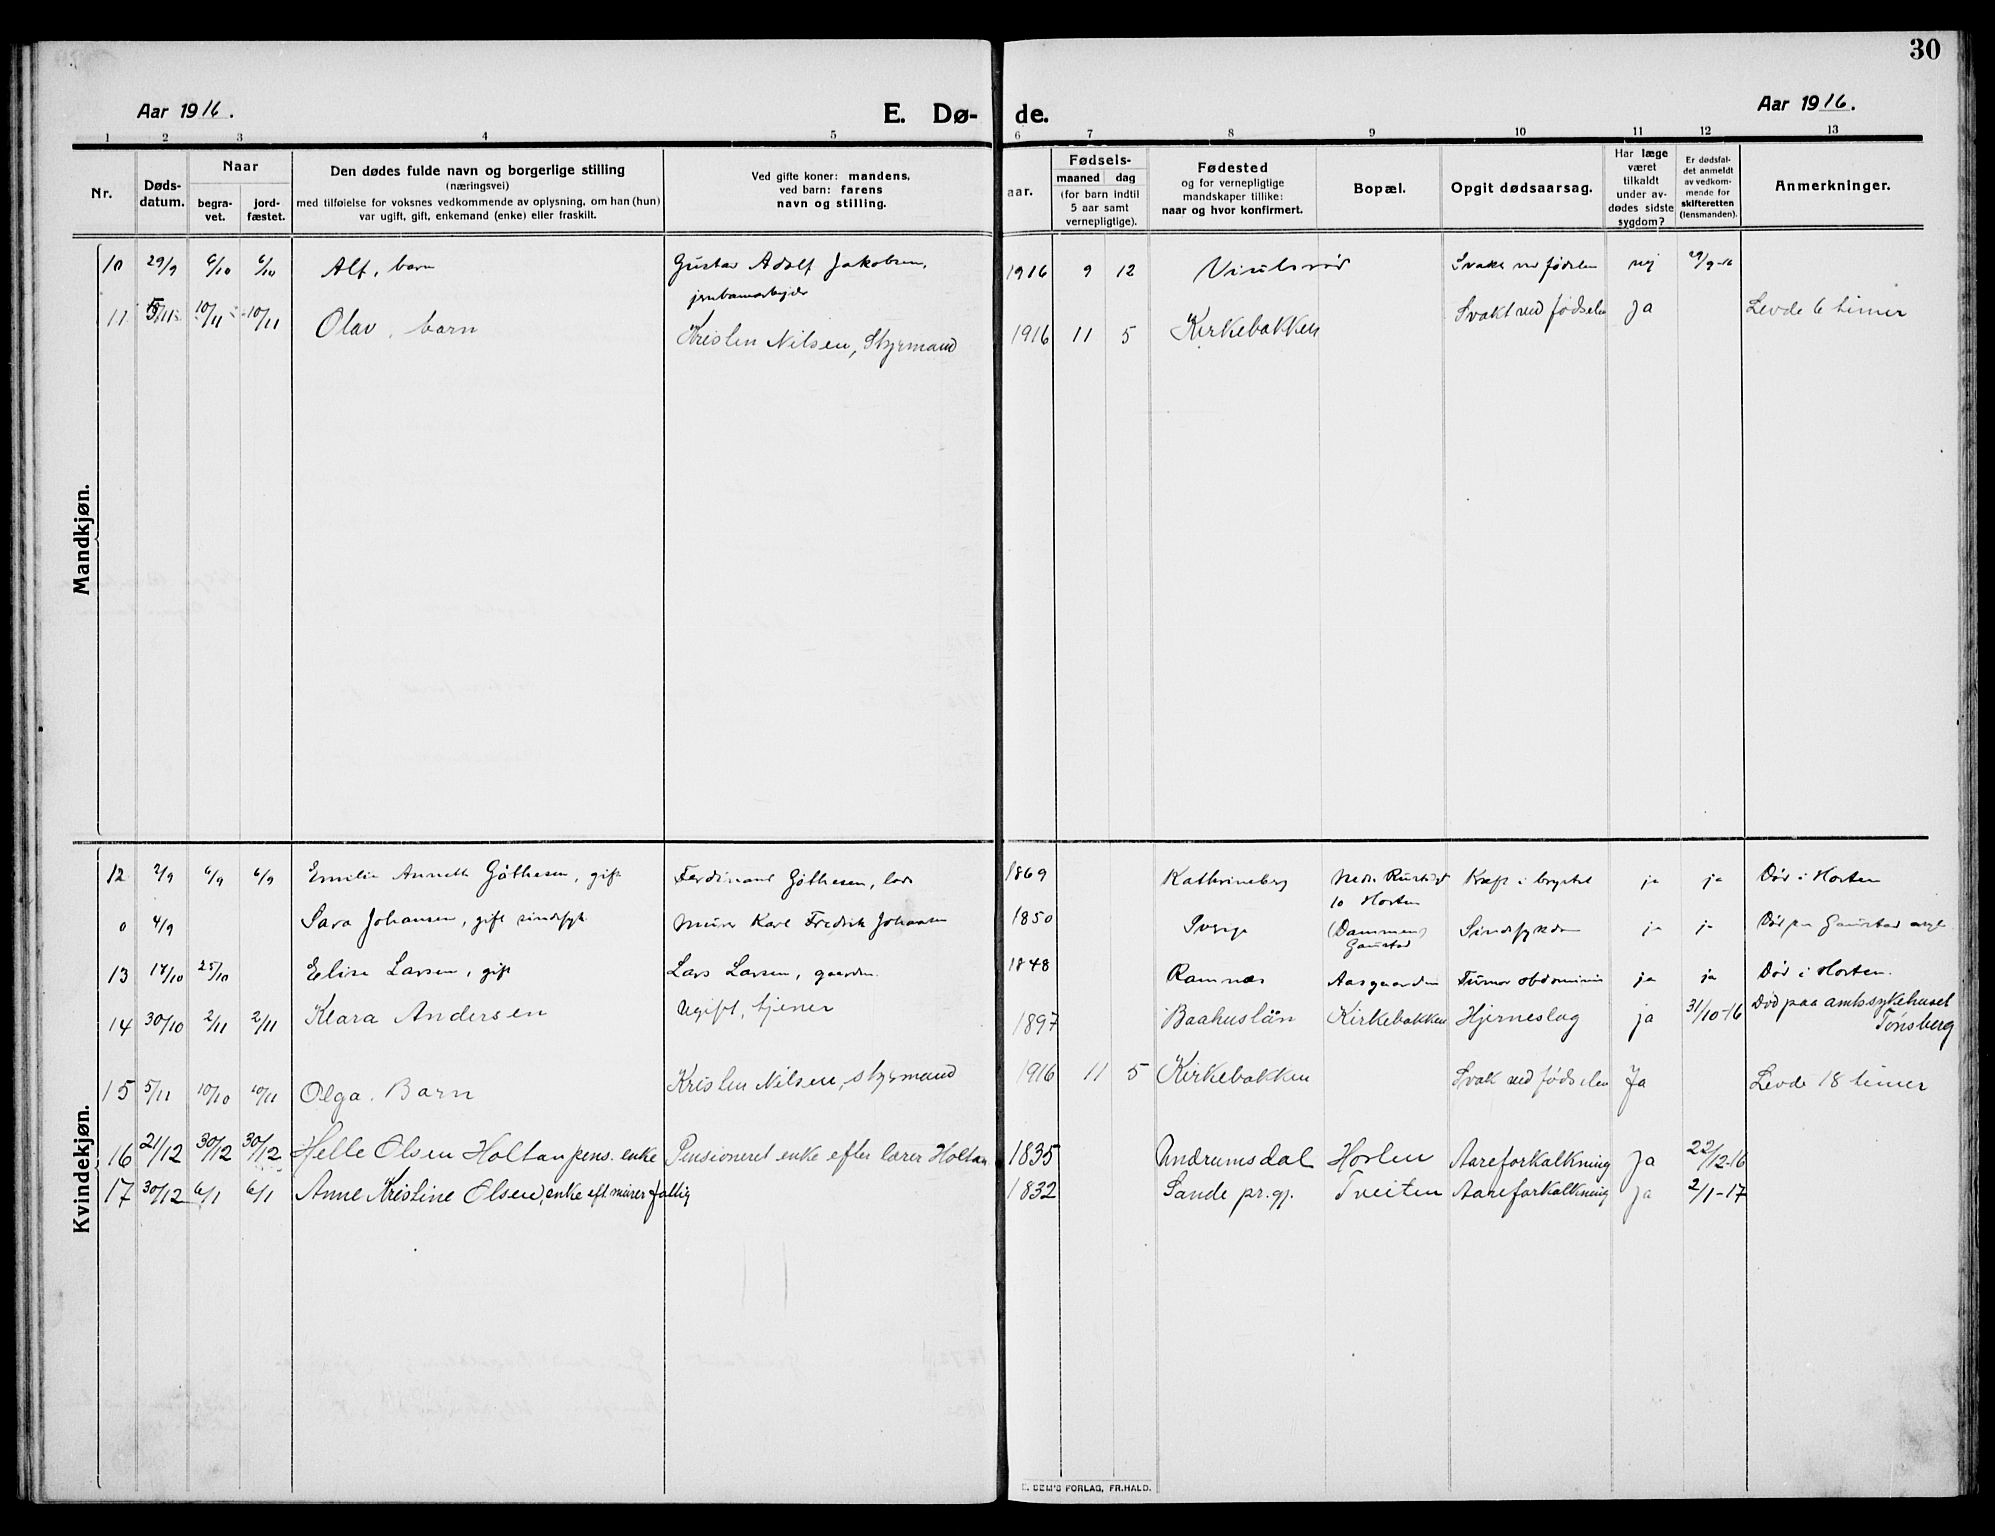 30
Aar 1916.
E. Dø-
de.
Aar 1916.
1 2 3 4 5 6 7 8 9 10 11 12 13
Nr.
Døds-
datum.
Naar
begra-
vet.
jord-
fæstet.
Den dødes fulde navn og borgerlige stilling
(næringsvei)
med tilføielse for voksnes vedkommende av oplysning, om han (hun)
var ugift, gift, enkemand (enke) eller fraskilt.
Ved gifte koner: mandens,
ved barn: farens
navn og stilling.
aar.
Fødsels-
maaned dag
(for barn indtil
5 aar samt
vernepligtige).
Fødested
og for vernepligtige
mandskaper tillike:
naar og hvor konfirmert.
Bopæl.
Opgit dødsaarsag.
Har læge
været
tilkaldt
under av-
dødes sidste
sygdom?
Er dødsfal-
det anmeldt
av vedkom-
mende for
skifteretten
(lensmanden).
Anmerkninger.
Mandkjøn.
10 29/9 6/10 6/10 Alf, barn Gustav Adolf Jakobsen, 1916 9 12 Svak ved fødselen nej 29/9-16
jernbanearbejder
11 5/11 10/11 10/11 Olav, barn Kristen Nilsen, Styrmand 1916 11 5 Kirkebakken Svakt ved fødselen Ja Levde 6 timer
Kvindekjøn.
12 2/9 6/9 6/9 Emilie Annette Gøthesen, gift Ferdinand Gøthesen, lods 1869 Kathrineberg Nedre Kræft i brystet ja ja Død i Horten
10 Horten
0 4/9 Sara Johansen, gift sindssyk Murer Karl Fredrik Johansen 1850 Sverige (Dammen) Sindssykdom ja ja Død paa Gaustad asyl
Gaustad
13 18/10 25/10 Elise Larsen, gift Lars Larsen, gaardm. 1848 Ramnæs Aasgaarden Tumor abdominis ja ja Død i Horten.
14 30/10 2/11 2/11 Klara Andersen Ugift, tjener 1897 Baahuslän Kirkebakken Hjerneslag ja 31/10-16 Død paa amtssykehuset
Tønsberg
15 5/11 10/10 10/11 Olga. Barn Kristen Nilsen, styrmand 1916 11 5 Kirkebakken Svak ved fødselen Ja Levde 18 timer
16 21/12 30/12 30/12 Helle Olsen Holtan pens. enke Pensioneret enke efter lærer Holtan 1835 Undrumsdal Horten Aareforkalkning Ja 22/12-16
17 30/12 6/1 6/1 Anne Kristine Olsen, enke eft. murer, fattig 1832 Sande pr.gj. Tveiten Aareforkalkning ja 2/1-17
SEM'S FORLAG, FR.HALD.